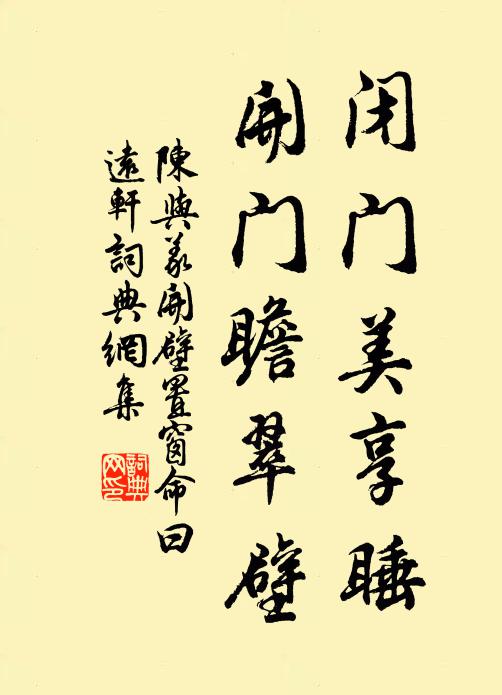 闭门美享睡
開门瞻翠壁
陳與義開壁置窗命曰
遠軒詞典網集
詞典
网印